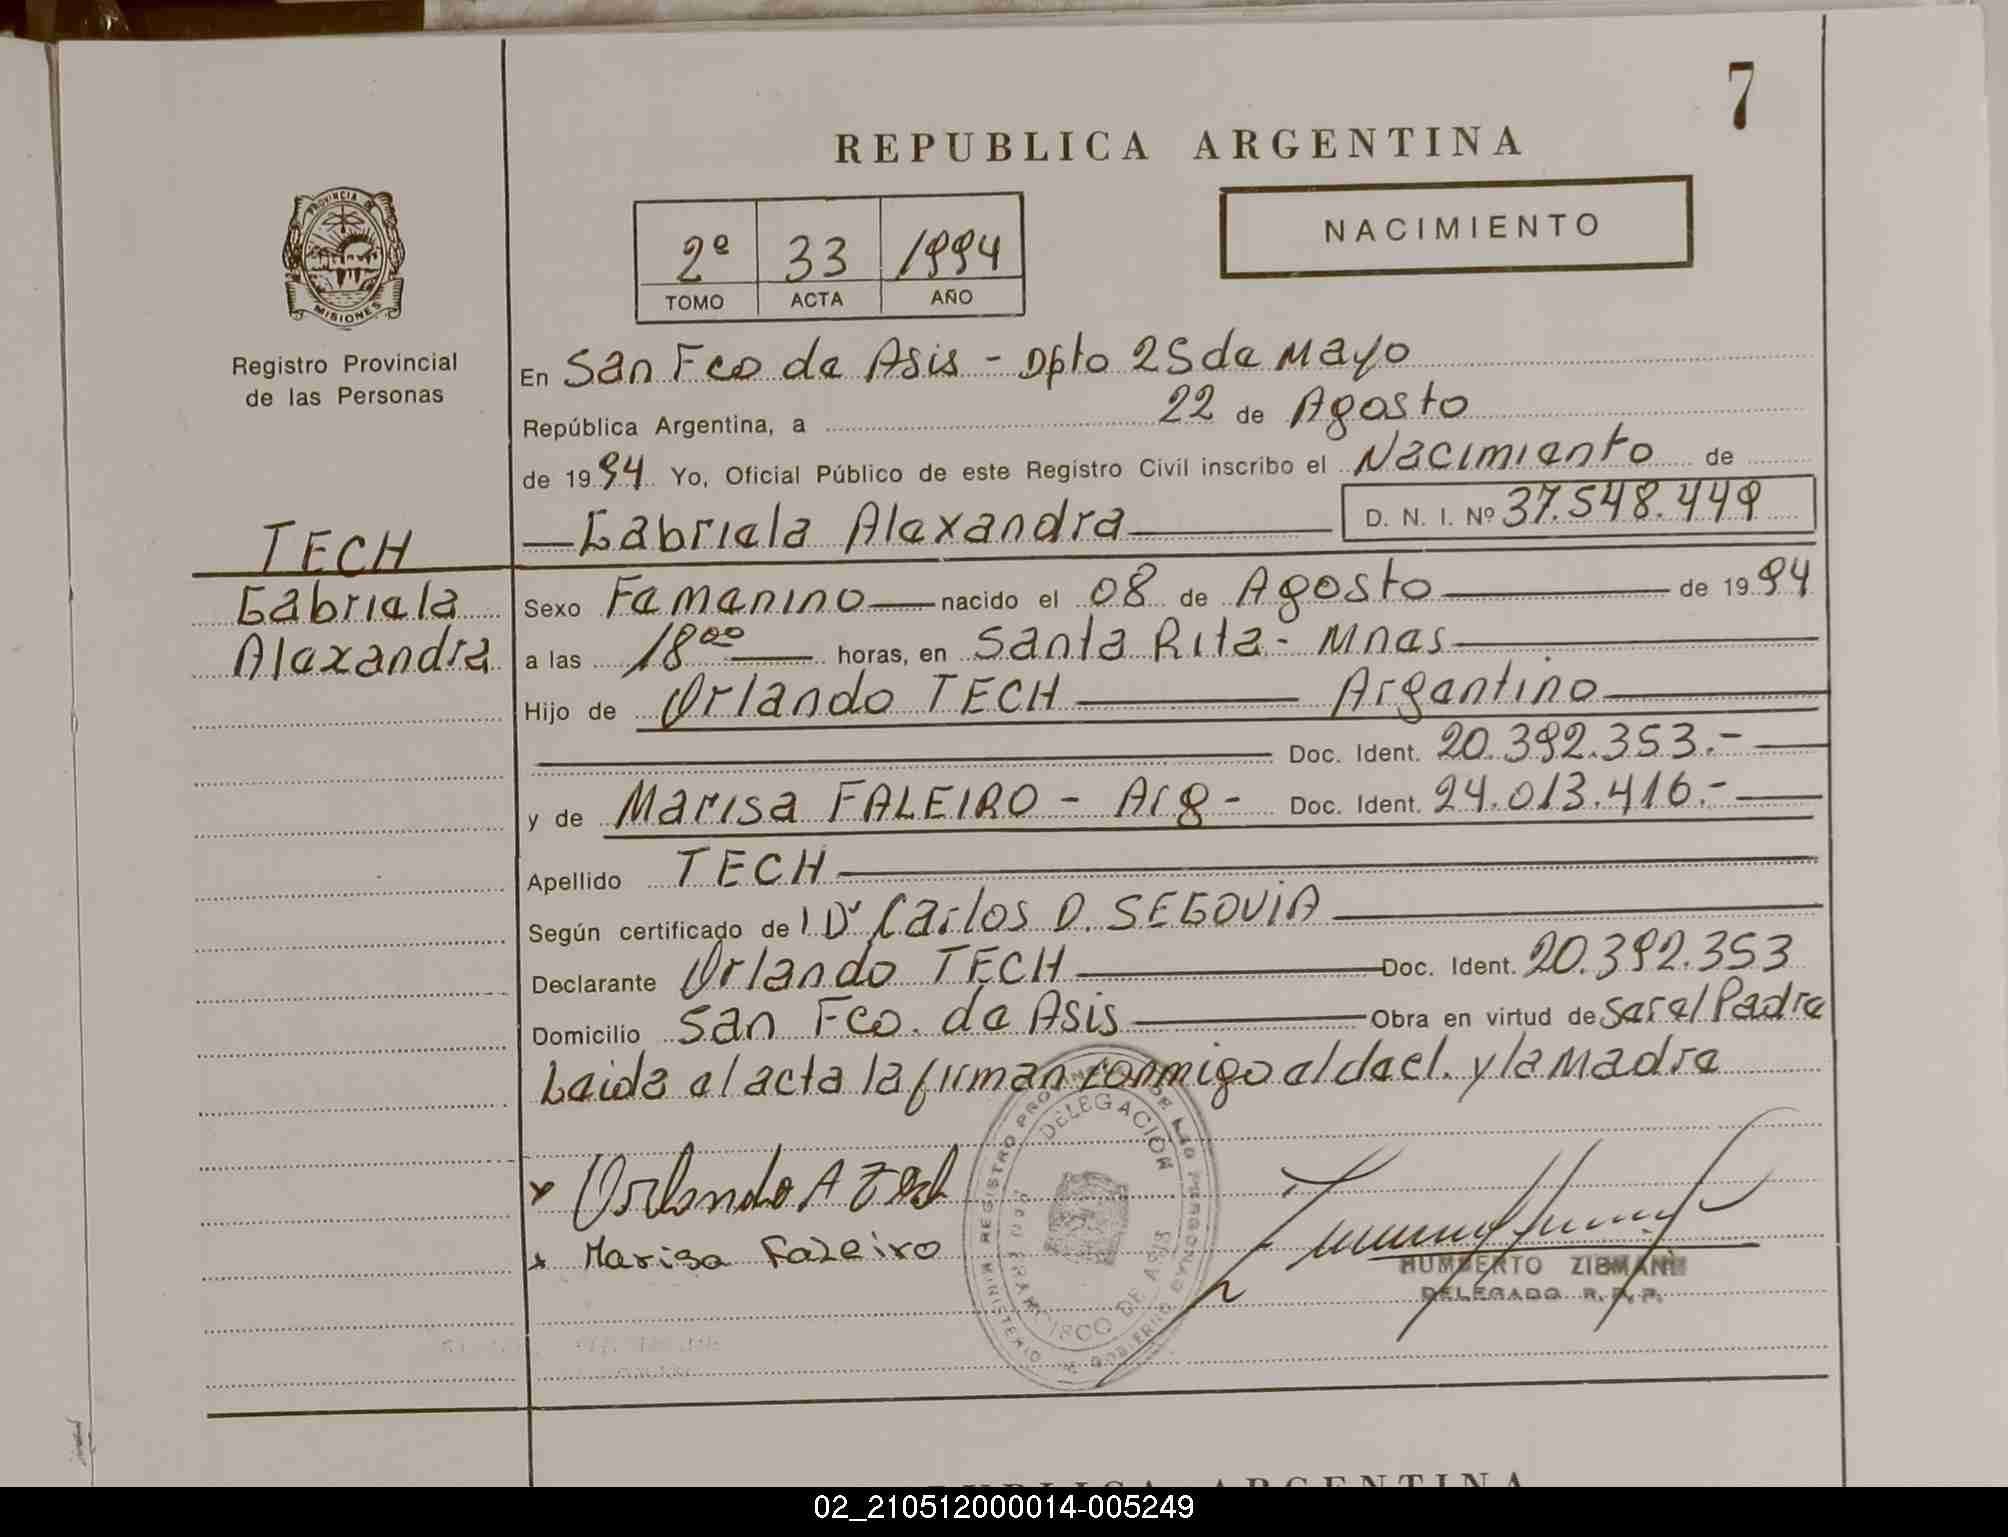 7
REPUBLICA ARGENTINA
NACIMIENTO
2º 33 1994
TOMO ACTA AÑO
PROVINCIA DE
MISIONES
Registro Provincial
de las Personas
TECH
Gabriela
Alexandra
En San Fco de Asis - Dpto 25 de Mayo
República Argentina, a 22 de Agosto
de 1994 Yo, Oficial Público de este Registro Civil inscribo el Nacimiento de
Gabriela Alexandra D. N. I. Nº 37.548.449
Sexo Femenino nacido el 08 de Agosto de 1994
a las 18 00 horas, en Santa Rita - Mnes
Hijo de Orlando TECH Argentino
Doc. Ident. 20.392.353.-
y de Marisa FALEIRO - Arg - Doc. Ident. 24.013.416.-
Apellido TECH
Según certificado de Dr Carlos D. SEGOVIA
Declarante Orlando TECH Doc. Ident. 20.392.353
Domicilio San Fco. de Asis Obra en virtud de Ser el Padre
Leida el acta la firman conmigo el decl. y la Madre
Orlando A Tech
Marisa Faleiro
DELEGACIÓN
DE ASIS
HUMBERTO ZIEMANN
DELEGADO R. P. P.
REPUBLICA ARGENTINA
02_210512000014-005249